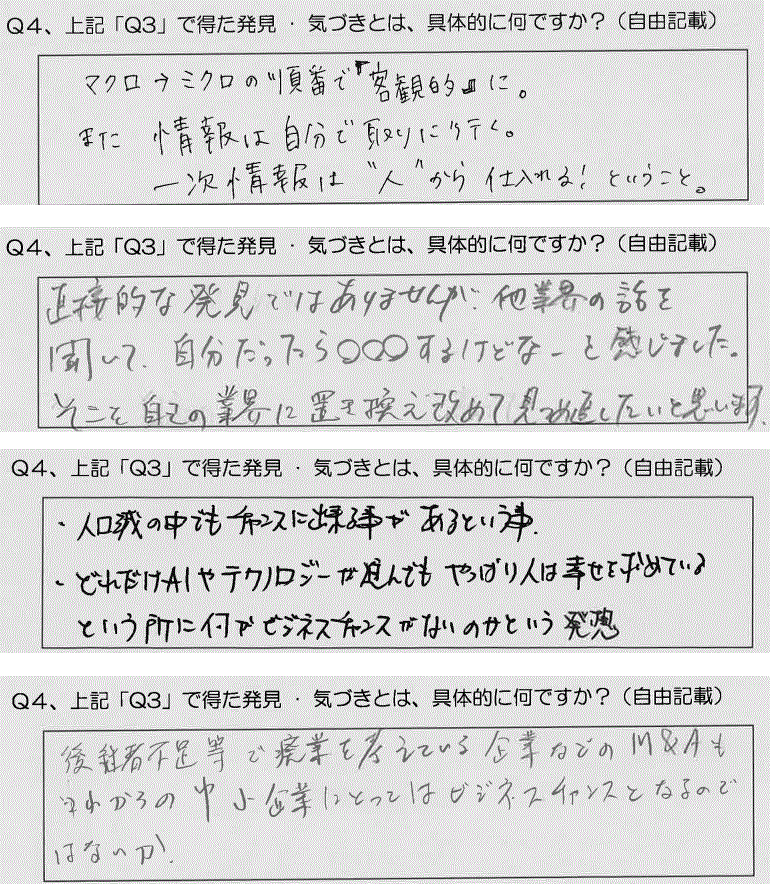 Q4、上記「Q3」で得た発見・気づきとは、具体的に何ですか？（自由記載）
マクロ→ミクロの順番で「客観的」に。
また 情報は自分で取りに行く。
一次情報は“人”から仕入れる！ということ。
Q4、上記「Q3」で得た発見・気づきとは、具体的に何ですか？（自由記載）
直接的な発見ではありませんが、他業界の話を
聞いて、自分だったら○○○するけどなーと感じました。
そこを自己の業界に置き換え改めて見つめ直したいと思います。
Q4、上記「Q3」で得た発見・気づきとは、具体的に何ですか？（自由記載）
・人口減の中でもチャンスに出来る事があるという事。
・どれだけAIやテクノロジーが進んでもやっぱり人は幸せを求めている
という所に何かビジネスチャンスがないのかという発想
Q4、上記「Q3」で得た発見・気づきとは、具体的に何ですか？（自由記載）
後継者不足等で廃業を考えている企業などのM&Aも
これからの中小企業にとってはビジネスチャンスとなるので
はないか。